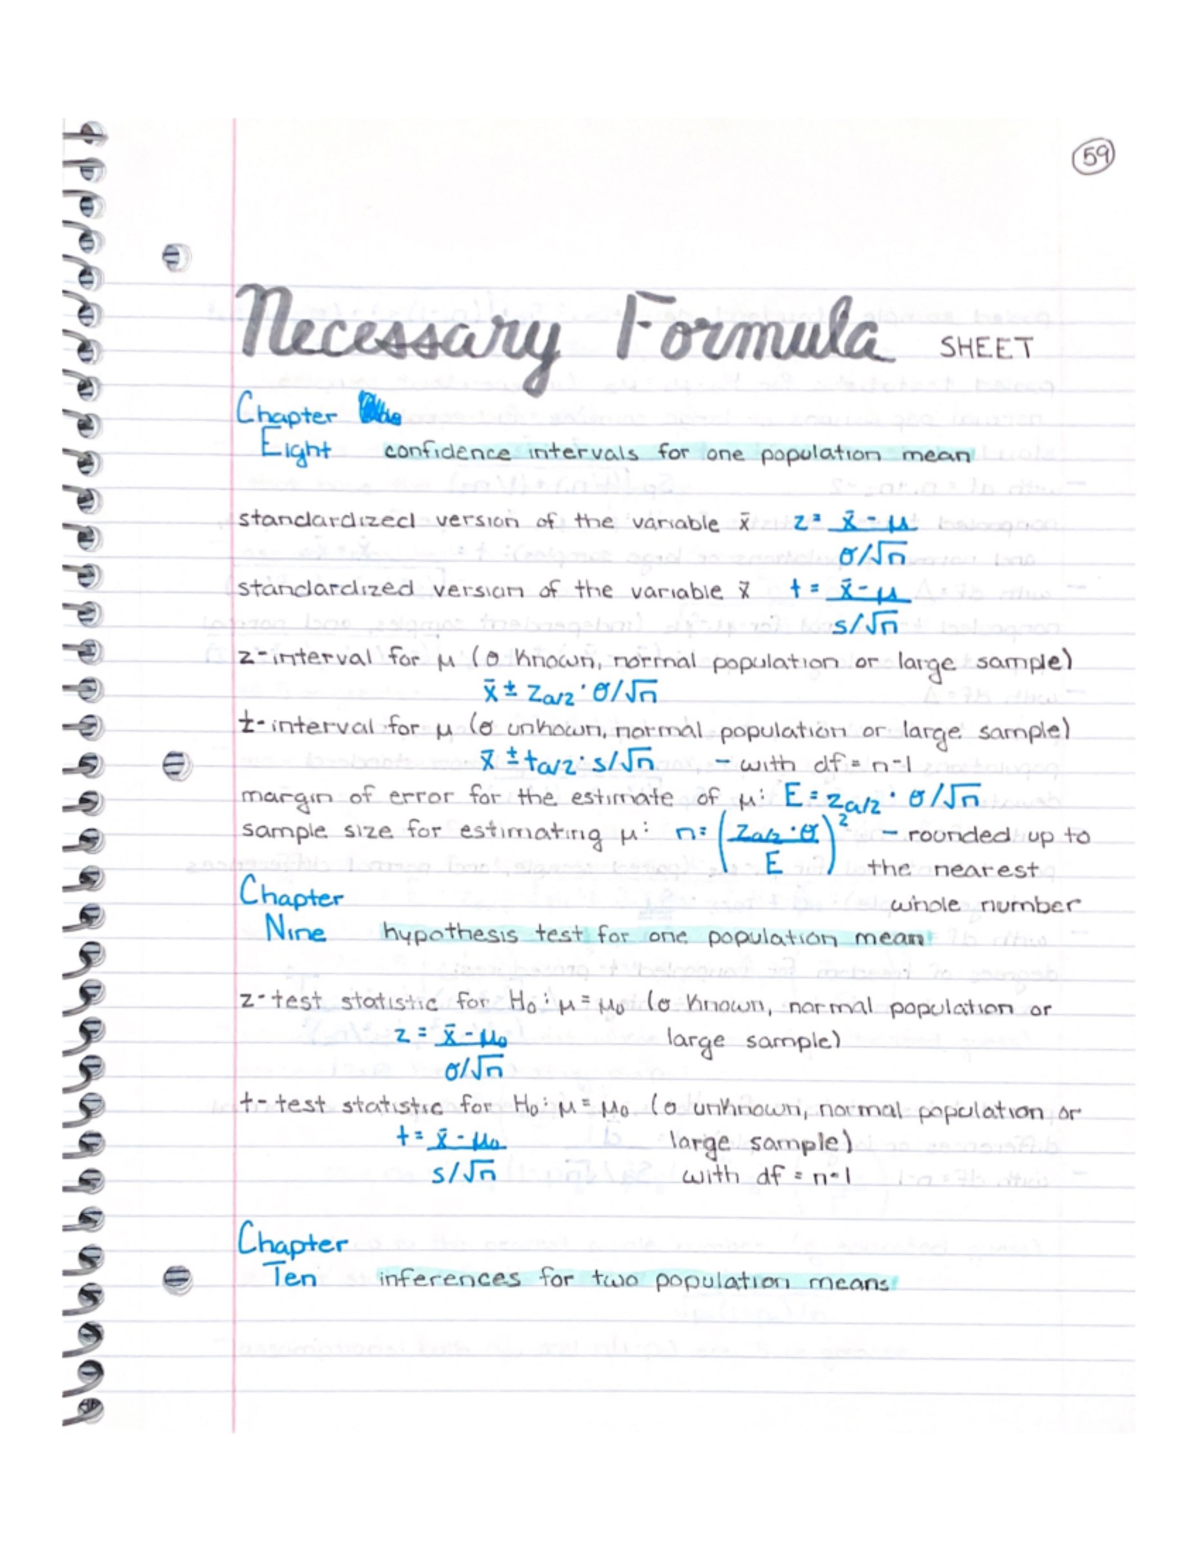 59
Necessary Formula SHEET
Chapter
Eight confidence intervals for one population mean
standardized version of the variable x̄ z = x̄ - μ
σ/√n
standardized version of the variable x̄ t = x̄ - μ
s/√n
z-interval for μ (σ known, normal population or large sample)
x̄ ± za/2 · σ/√n
t-interval for μ (σ unknown, normal population or large sample)
x̄ ± ta/2 · s/√n - with df = n-1
margin of error for the estimate of μ: E = za/2 · σ/√n
sample size for estimating μ: n = (za/2 · σ / E)² - rounded up to
the nearest
whole number
Chapter
Nine hypothesis test for one population mean
z-test statistic for H₀: μ = μ₀ (σ known, normal population or
z = x̄ - μ₀ large sample)
σ/√n
t-test statistic for H₀: μ = μ₀ (σ unknown, normal population or
t = x̄ - μ₀ large sample)
s/√n with df = n-1
Chapter
Ten inferences for two population means